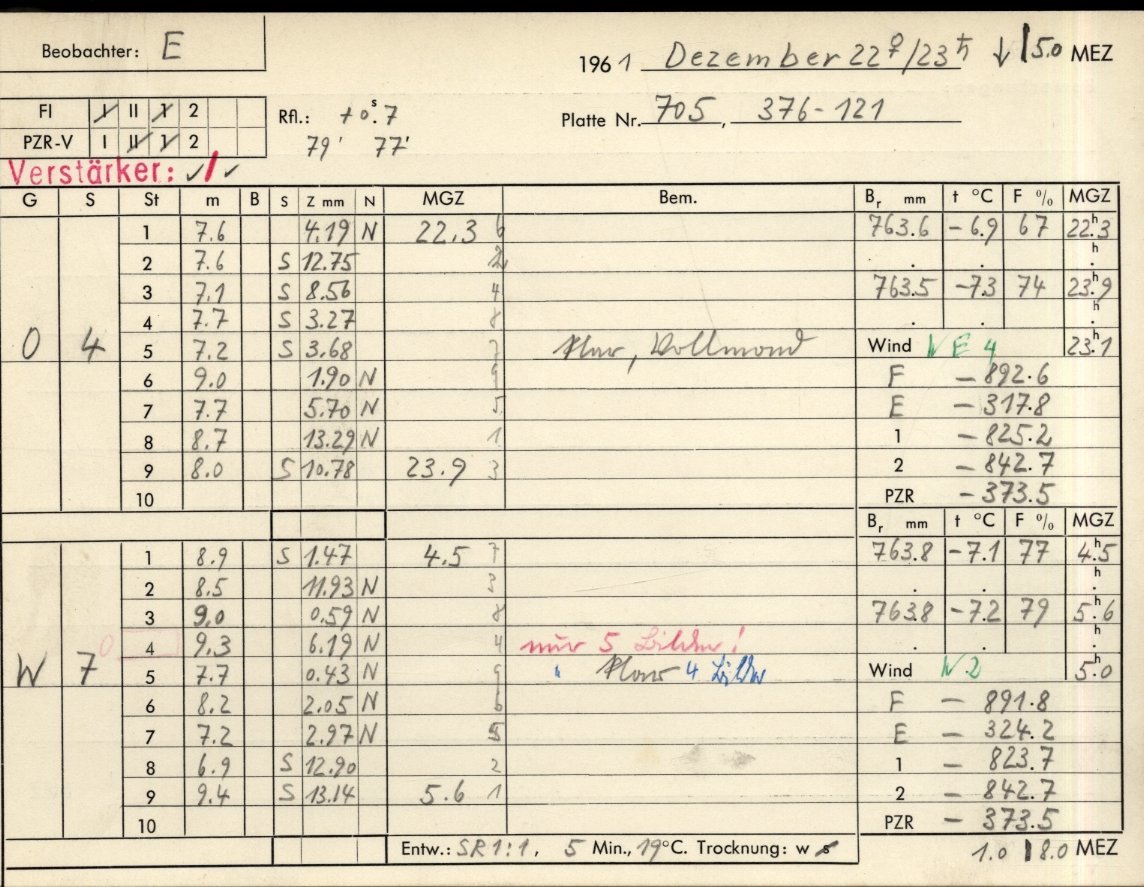 Beobachter: E
1961 Dezember 22♀/23♄ ↓ 15.0 MEZ
FI I II 1 2 Rfl.: +0ˢ.7
PZR-V I II 1 2 79' 77'
Platte Nr. 705, 376-121
Verstärker: ✓/✓
G S St m B S Z mm N MGZ Bem. Bᵣ mm t °C F % MGZ
1 7.6 4.19 N 22.3 6 763.6 -6.9 67 22ʰ.3
2 7.6 S 12.75 2 . . h .
3 7.1 S 8.56 4 763.5 -7.3 74 23ʰ.9
4 7.7 S 3.27 8 . . h .
O 4 5 7.2 S 3.68 7 klar, Vollmond Wind NE 4 23ʰ.1
6 9.0 1.90 N 9 F - 892.6
7 7.7 5.70 N 5 E - 317.8
8 8.7 13.29 N 1 1 - 825.2
9 8.0 S 10.78 23.9 3 2 - 842.7
10 PZR - 373.5
Bᵣ mm t °C F % MGZ
1 8.9 S 1.47 4.5 7 763.8 -7.1 77 4ʰ.5
2 8.5 11.93 N 3 . . h .
3 9.0 0.59 N 8 763.8 -7.2 79 5ʰ.6
0 4 9.3 6.19 N 4 nur 5 Bilder! . . h .
W 7 5 7.7 0.43 N 9 " klar 4 Bilder Wind N 2 5ʰ.0
6 8.2 2.05 N 6 F - 891.8
7 7.2 2.97 N 5 E - 324.2
8 6.9 S 12.90 2 1 - 823.7
9 9.4 S 13.14 5.6 1 2 - 842.7
10 PZR - 373.5
Entw.: SR 1:1, 5 Min., 19°C. Trocknung: w s 1.0 18.0 MEZ